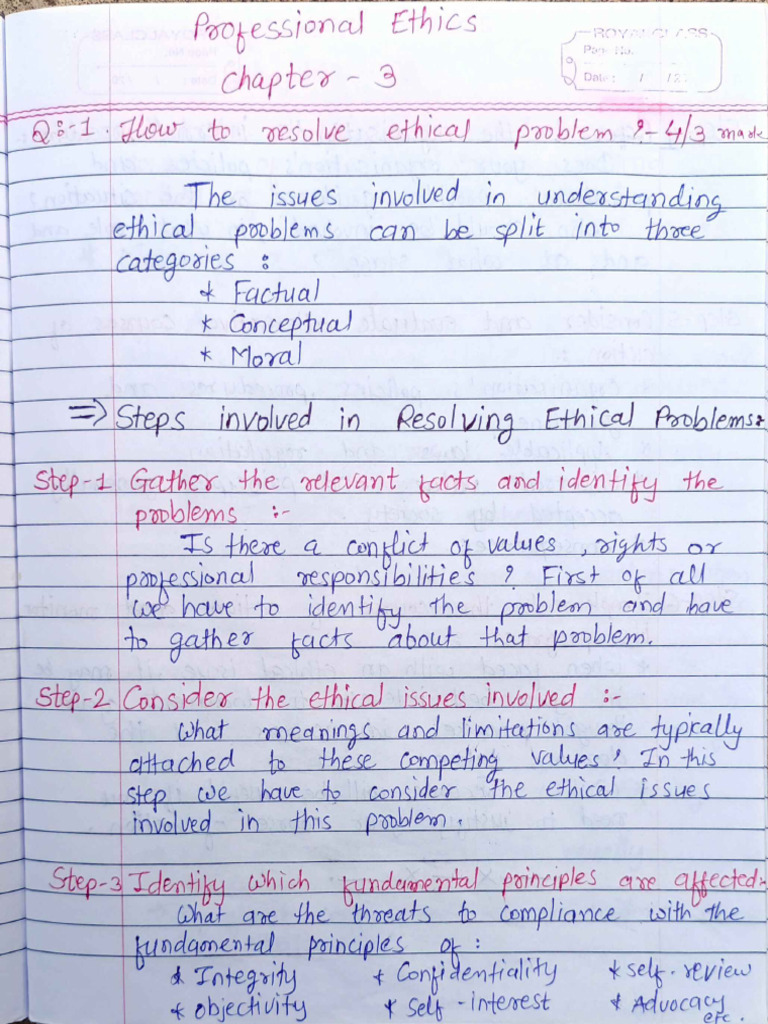 Professional Ethics
ROYALCLASS
Page No.
Chapter - 3
Date: / /2
Q:-1 How to resolve ethical problem ?- 4/3 mark
The issues involved in understanding
ethical problems can be split into three
categories :
* Factual
* Conceptual
* Moral
⇒ Steps involved in Resolving Ethical Problems:
Step-1 Gather the relevant facts and identify the
problems :-
Is there a conflict of values, rights or
professional responsibilities ? First of all
we have to identify the problem and have
to gather facts about that problem.
Step-2 Consider the ethical issues involved :-
What meanings and limitations are typically
attached to these competing values? In this
step we have to consider the ethical issues
involved in this problem.
Step-3 Identify which fundamental principles are affected:-
What are the threats to compliance with the
fundamental principles of :
* Integrity * Confidentiality * self-review
* objectivity * Self-interest * Advocacy
etc.